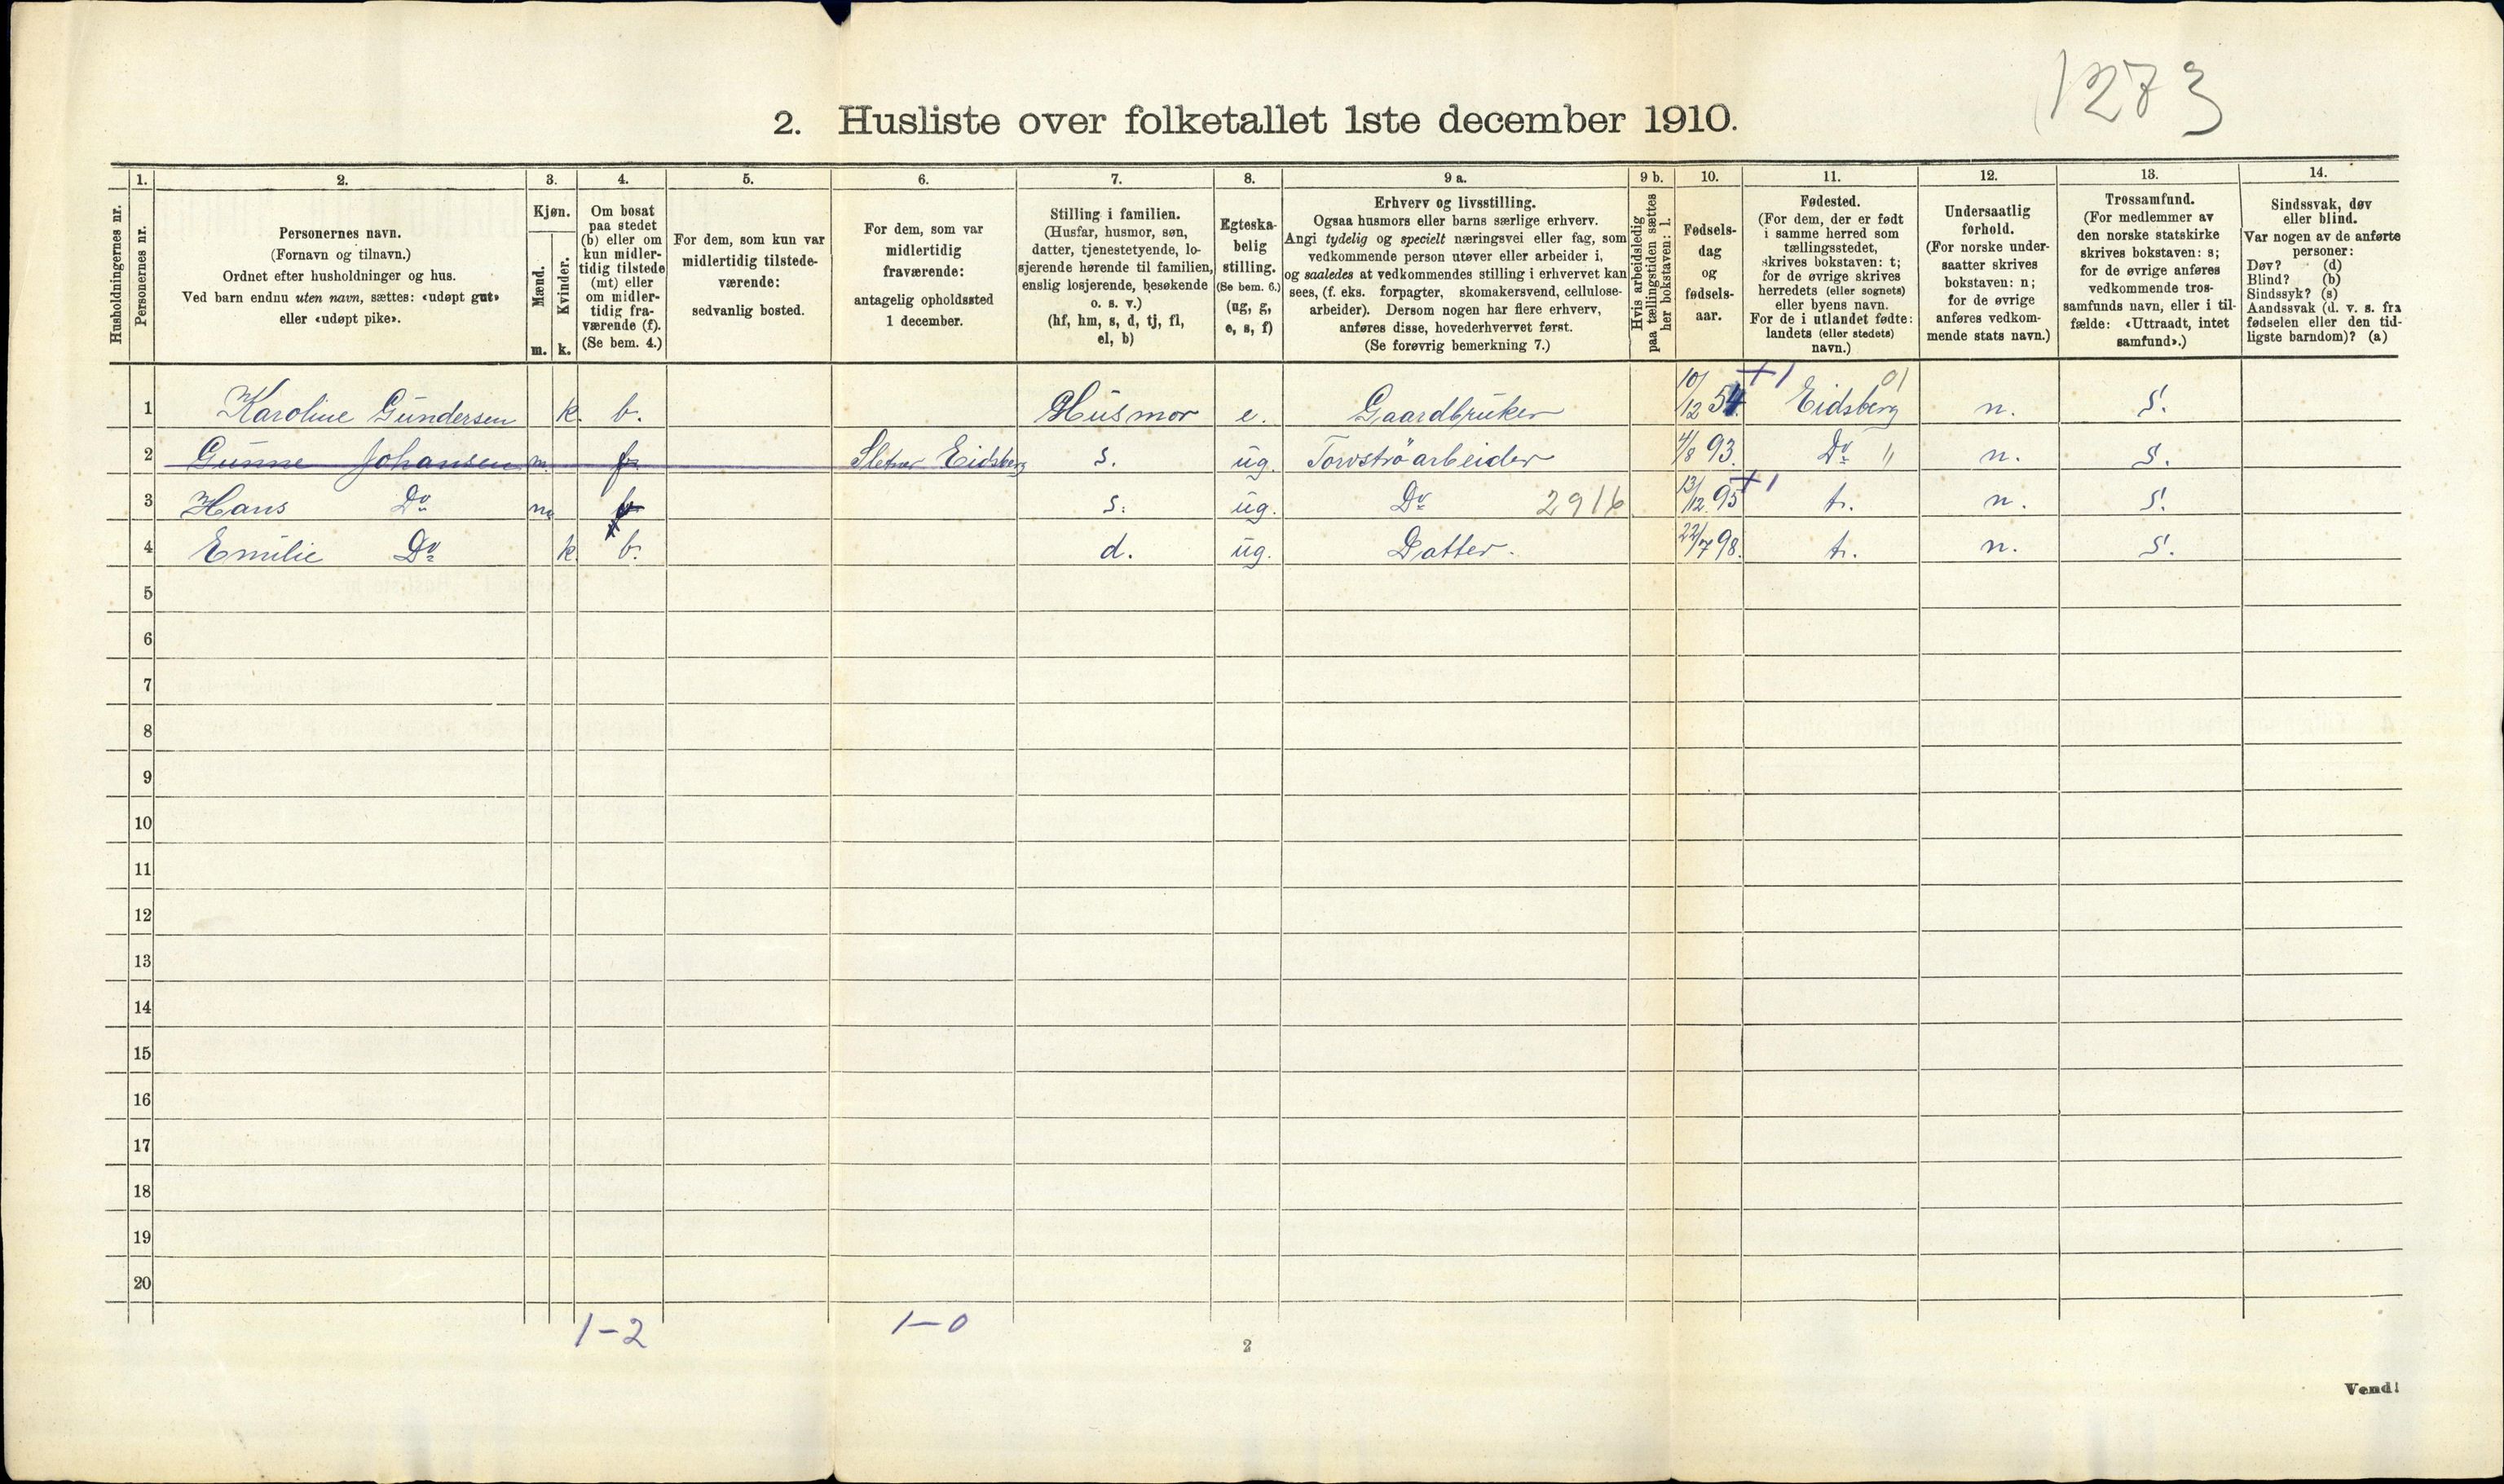 1273
2. Husliste over folketallet 1ste december 1910.
Husholdningernes nr.
1.
Personernes nr.
2.
Personernes navn.
(Fornavn og tilnavn.)
Ordnet efter husholdninger og hus.
Ved barn endnu uten navn, sættes: «udøpt gut»
eller «udøpt pike».
3.
Kjøn.
Mænd.
Kvinder.
m. k.
4.
Om bosat
paa stedet
(b) eller om
kun midler-
tidig tilstede
(mt) eller
om midler-
tidig fra-
værende (f).
(Se bem. 4.)
5.
For dem, som kun var
midlertidig tilstede-
værende:
sedvanlig bosted.
6.
For dem, som var
midlertidig
fraværende:
antagelig opholdssted
1 december.
7.
Stilling i familien.
(Husfar, husmor, søn,
datter, tjenestetyende, lo-
sjerende hørende til familien,
enslig losjerende, besøkende
o. s. v.)
(hf, hm, s, d, tj, fl,
el, b)
8.
Egteska-
belig
stilling.
(Se bem. 6.)
(ug, g,
e, s, f)
9 a.
Erhverv og livsstilling.
Ogsaa husmors eller barns særlige erhverv.
Angi tydelig og specielt næringsvei eller fag, som
vedkommende person utøver eller arbeider i,
og saaledes at vedkommendes stilling i erhvervet kan
sees, (f. eks. forpagter, skomakersvend, cellulose-
arbeider). Dersom nogen har flere erhverv,
anføres disse, hovederhvervet først.
(Se forøvrig bemerkning 7.)
9 b.
Hvis arbeidsledig
paa tællingstiden sættes
her bokstaven: l.
10.
Fødsels-
dag
og
fødsels-
aar.
11.
Fødested.
(For dem, der er født
i samme herred som
tællingsstedet,
skrives bokstaven: t;
for de øvrige skrives
herredets (eller sognets)
eller byens navn.
For de i utlandet fødte:
landets (eller stedets)
navn.)
12.
Undersaatlig
forhold.
(For norske under-
saatter skrives
bokstaven: n;
for de øvrige
anføres vedkom-
mende stats navn.)
13.
Trossamfund.
(For medlemmer av
den norske statskirke
skrives bokstaven: s;
for de øvrige anføres
vedkommende tros-
samfunds navn, eller i til-
fælde: «Uttraadt, intet
samfund».)
14.
Sindssvak, døv
eller blind.
Var nogen av de anførte
personer:
Døv? (d)
Blind? (b)
Sindssyk? (s)
Aandssvak (d. v. s. fra
fødselen eller den tid-
ligste barndom)? (a)
1 Karoline Gundersen k. b. Husmor e. Gaardbruker 10/12 54. +1 Eidsberg 01 n. S.
2 Gunne Johansen m. f. Sletner Eidsberg s. ug. Torvströarbeider 4/8 93. Do " n. S.
3 Hans Do m. s. ug. Do 2916 13/12 95 +1 t. n. S.
4 Emilie Do k. b. d. ug. Datter. 22/7 98. t. n. S.
5
6
7
8
9
10
11
12
13
14
15
16
17
18
19
20
1-2 1-0
2
Vend!